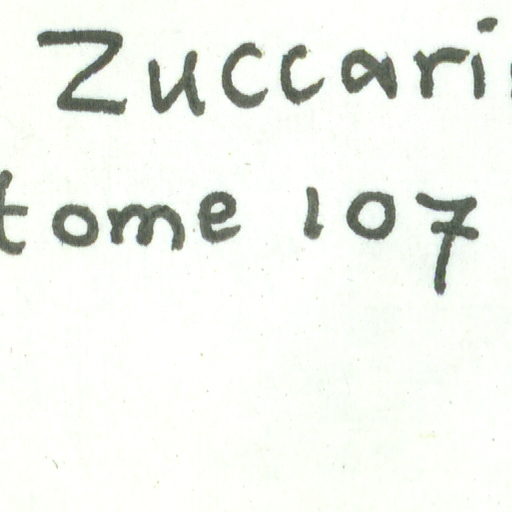 Zuccari
tome 107